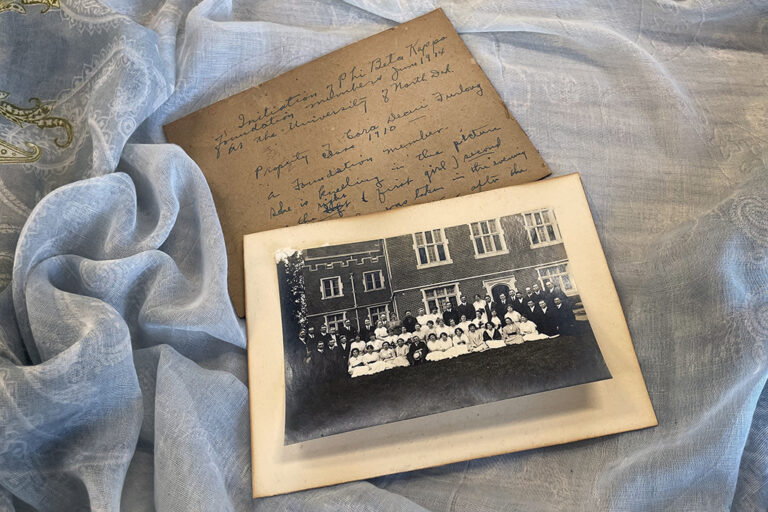 Initiation of Phi Beta Kappa
Foundation members June 1914
at the University of North Dak.
Property of Cora Dean Furlong
Class 1910
a Foundation member.
She is kneeling in the picture
the right & first girl) second
was taken in the evening
after the